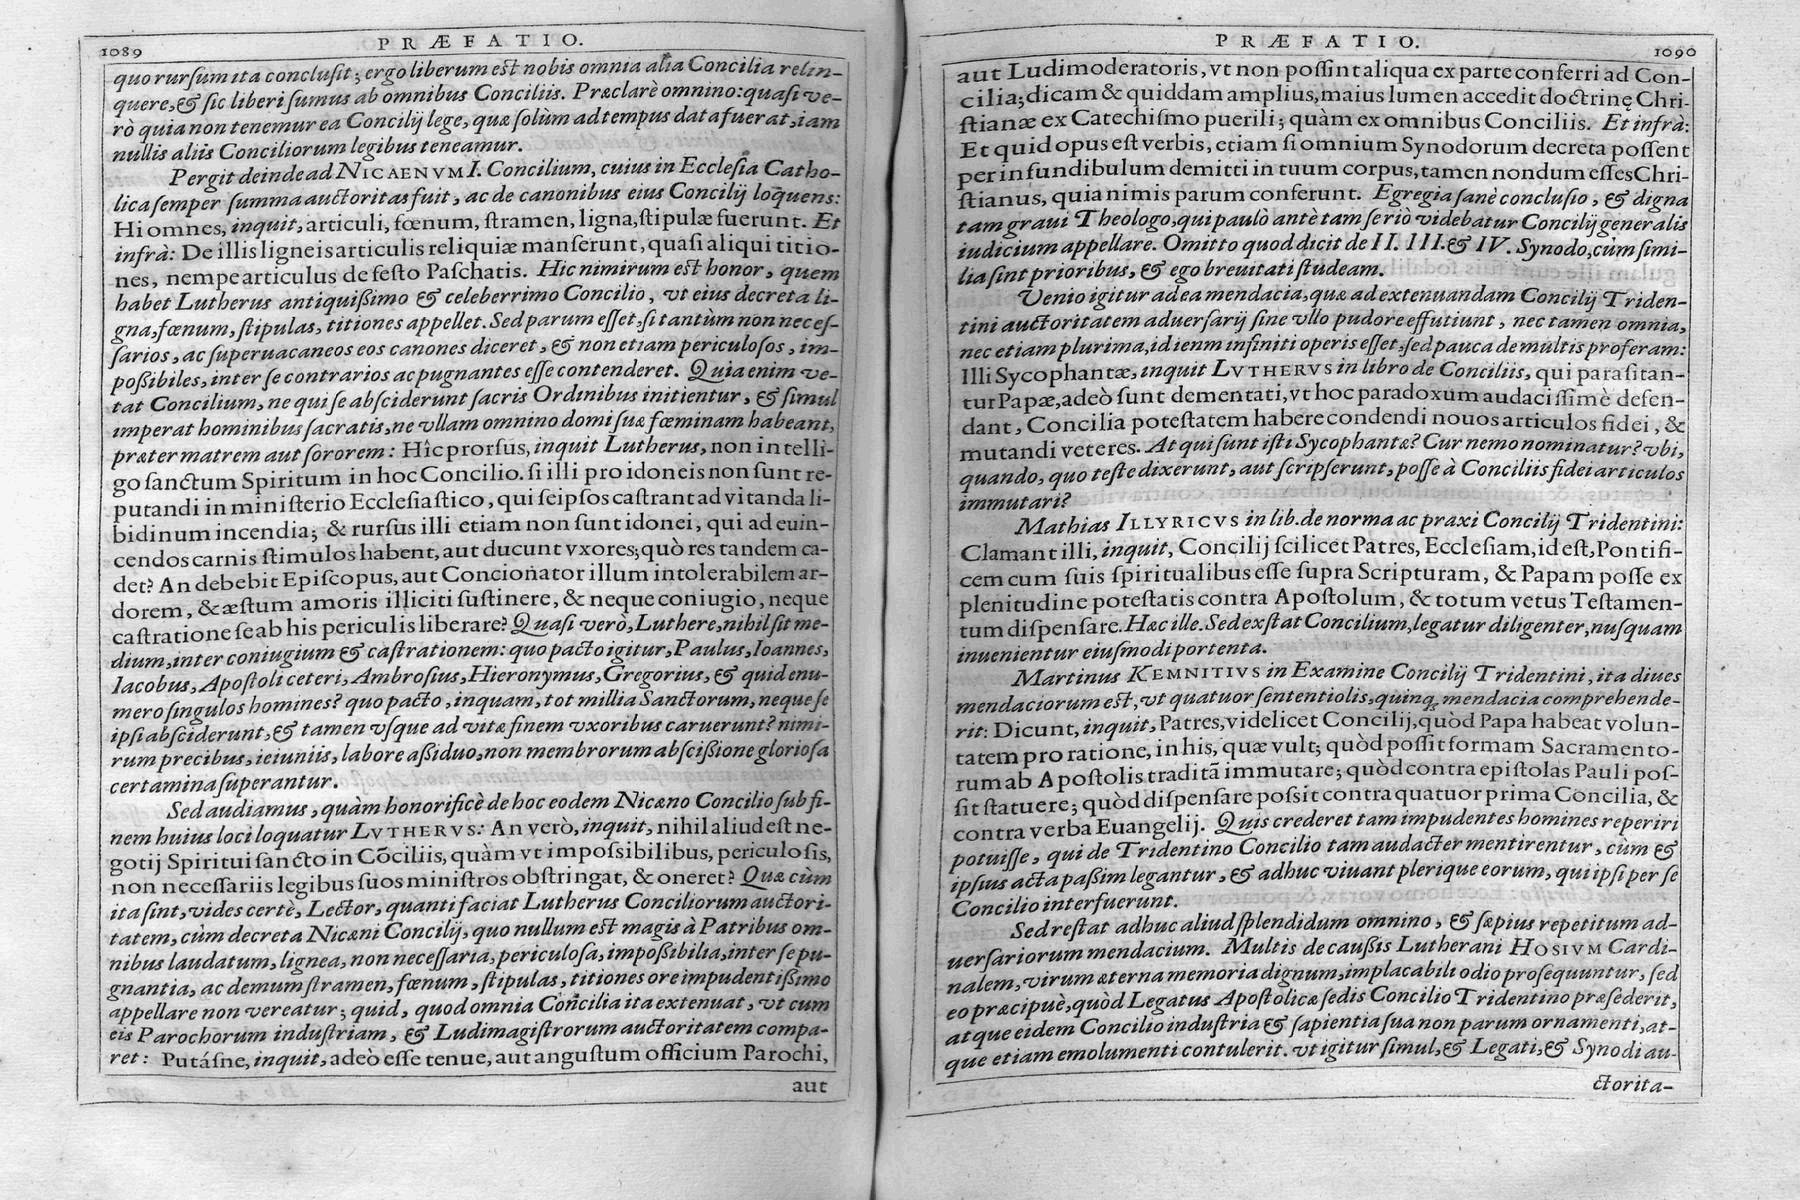 1089
PRÆFATIO.
quo rursum ita conclusit; ergo liberum est nobis omnia alia Concilia relin-
quere, & sic liberi sumus ab omnibus Conciliis. Præclarè omnino: quasi ve-
rò quia non tenemur ea Concilij lege, quæ solum ad tempus data fuerat, iam
nullis aliis Conciliorum legibus teneamur.
Pergit deinde ad NICAENVM I. Concilium, cuius in Ecclesia Catho-
lica semper summa auctoritas fuit, ac de canonibus eius Concilij loq̃uens:
Hi omnes, inquit, articuli, fœnum, stramen, ligna, stipulæ fuerunt. Et
infrà: De illis ligneis articulis reliquiæ manserunt, quasi aliqui titio-
nes, nempe articulus de festo Paschatis. Hic nimirum est honor, quem
habet Lutherus antiquißimo & celeberrimo Concilio, vt eius decreta li-
gna, fœnum, stipulas, titiones appellet. Sed parum esset, si tantùm non neces-
sarios, ac superuacaneos eos canones diceret, & non etiam periculosos, im-
poßibiles, inter se contrarios ac pugnantes esse contenderet. Quia enim ve-
tat Concilium, ne qui se absciderunt sacris Ordinibus initientur, & simul
imperat hominibus sacratis, ne vllam omnino domi suæ fœminam habeant,
præter matrem aut sororem: Hîc prorsus, inquit Lutherus, non intelli-
go sanctum Spiritum in hoc Concilio. si illi pro idoneis non sunt re-
putandi in ministerio Ecclesiastico, qui seipsos castrant ad vitanda li-
bidinum incendia; & rursus illi etiam non sunt idonei, qui ad euin-
cendos carnis stimulos habent, aut ducunt vxores; quò res tandem ca-
det? An debebit Episcopus, aut Concionator illum intolerabilem ar-
dorem, & æstum amoris illiciti sustinere, & neque coniugio, neque
castratione se ab his periculis liberare? Quasi verò, Luthere, nihil sit me-
dium, inter coniugium & castrationem: quo pacto igitur, Paulus, Ioannes,
Iacobus, Apostoli ceteri, Ambrosius, Hieronymus, Gregorius, & quid enu-
mero singulos homines? quo pacto, inquam, tot millia Sanctorum, neque se
ipsi absciderunt, & tamen vsque ad vitæ finem vxoribus caruerunt? nimi-
rum precibus, ieiuniis, labore aßiduo, non membrorum abscißione gloriosa
certamina superantur.
Sed audiamus, quàm honorificè de hoc eodem Nicæno Concilio sub fi-
nem huius loci loquatur LVTHERVS: An verò, inquit, nihil aliud est ne-
gotij Spiritui sancto in Cõciliis, quàm vt impossibilibus, periculosis,
non necessariis legibus suos ministros obstringat, & oneret? Quæ cùm
ita sint, vides certè, Lector, quanti faciat Lutherus Conciliorum auctori-
tatem, cùm decreta Nicæni Concilij, quo nullum est magis à Patribus om-
nibus laudatum, lignea, non necessaria, periculosa, impoßibilia, inter se pu-
gnantia, ac demum stramen, fœnum, stipulas, titiones ore impudentißimo
appellare non vereatur; quid, quod omnia Concilia ita extenuat, vt cum
eis Parochorum industriam, & Ludimagistrorum auctoritatem compa-
ret: Putásne, inquit, adeò esse tenue, aut angustum officium Parochi,
aut
PRÆFATIO.
1090
aut Ludimoderatoris, vt non possint aliqua ex parte conferri ad Con-
cilia; dicam & quiddam amplius, maius lumen accedit doctrinę Chri-
stianæ ex Catechismo puerili; quàm ex omnibus Conciliis. Et infrà:
Et quid opus est verbis, etiam si omnium Synodorum decreta possent
per infundibulum demitti in tuum corpus, tamen nondum esses Chri-
stianus, quia nimis parum conferunt. Egregia sanè conclusio, & digna
tam graui Theologo, qui paulò antè tam seriò videbatur Concilij generalis
iudicium appellare. Omitto quod dicit de II. III. & IV. Synodo, cùm simi-
lia sint prioribus, & ego breuitati studeam.
Venio igitur ad ea mendacia, quæ ad extenuandam Concilij Triden-
tini auctoritatem aduersarij sine vllo pudore effutiunt, nec tamen omnia,
nec etiam plurima, id enim infiniti operis esset, sed pauca de multis proferam:
Illi Sycophantæ, inquit LVTHERVS in libro de Conciliis, qui parasitan-
tur Papæ, adeò sunt dementati, vt hoc paradoxum audacissimè defen-
dant, Concilia potestatem habere condendi nouos articulos fidei, &
mutandi veteres. At qui sunt isti Sycophantæ? Cur nemo nominatur? vbi,
quando, quo teste dixerunt, aut scripserunt, posse à Conciliis fidei articulos
immutari?
Mathias ILLYRICVS in lib. de norma ac praxi Concilij Tridentini:
Clamant illi, inquit, Concilij scilicet Patres, Ecclesiam, id est, Pontifi-
cem cum suis spiritualibus esse supra Scripturam, & Papam posse ex
plenitudine potestatis contra Apostolum, & totum vetus Testamen-
tum dispensare. Hæc ille. Sed exstat Concilium, legatur diligenter, nusquam
inuenientur eiusmodi portenta.
Martinus KEMNITIVS in Examine Concilij Tridentini, ita diues
mendaciorum est, vt quatuor sententiolis, quinq; mendacia comprehende-
rit: Dicunt, inquit, Patres, videlicet Concilij, quòd Papa habeat volun-
tatem pro ratione, in his, quæ vult; quòd possit formam Sacramento-
rum ab Apostolis traditã immutare; quòd contra epistolas Pauli pos-
sit statuere; quòd dispensare possit contra quatuor prima Concilia, &
contra verba Euangelij. Quis crederet tam impudentes homines reperiri
potuisse, qui de Tridentino Concilio tam audacter mentirentur, cùm &
ipsius acta paßim legantur, & adhuc viuant plerique eorum, qui ipsi per se
Concilio interfuerunt.
Sed restat adhuc aliud splendidum omnino, & sæpius repetitum ad-
uersariorum mendacium. Multis de caußis Lutherani HOSIVM Cardi-
nalem, virum æterna memoria dignum, implacabili odio prosequuntur, sed
eo præcipuè, quòd Legatus Apostolicæ sedis Concilio Tridentino præsederit,
atque eidem Concilio industria & sapientia sua non parum ornamenti, at-
que etiam emolumenti contulerit. vt igitur simul, & Legati, & Synodi au-
ctorita-